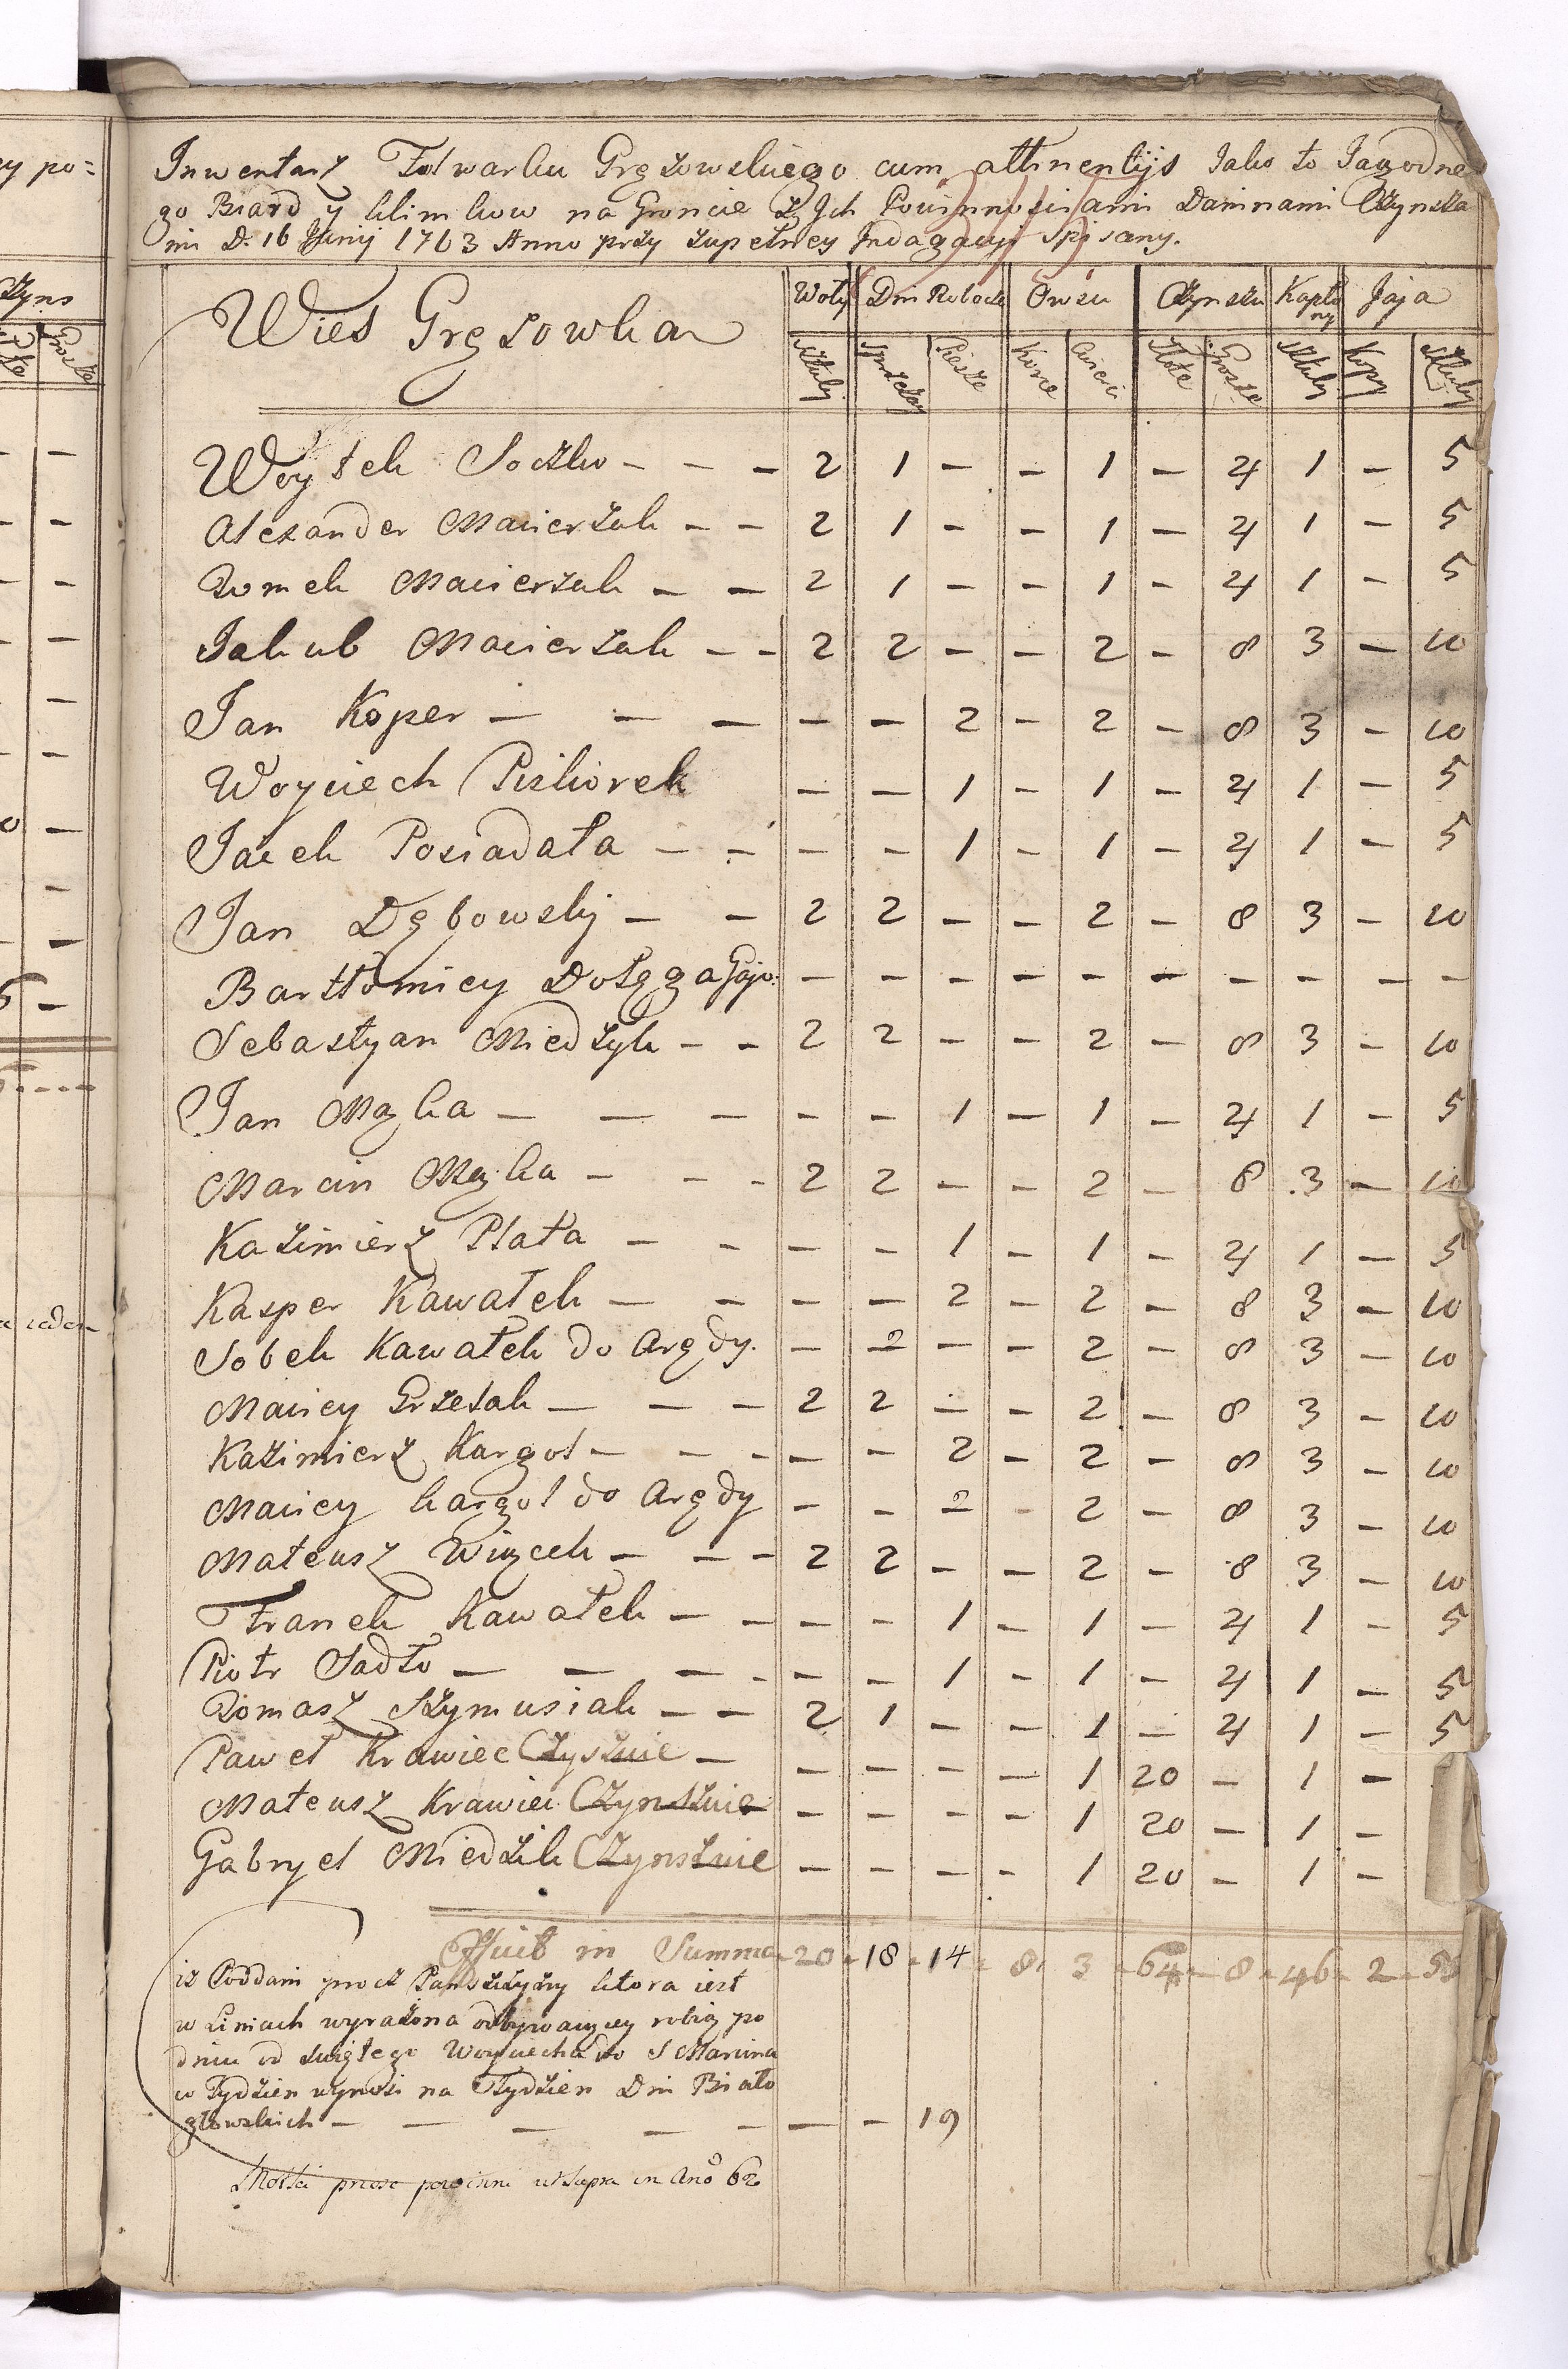 Inwentarz Folwarku Gręzowskiego cum attinentijs Jako to Jagodne
go Biard y Klimkow na Groncie Z Jch Powinnosciami Daninami Czynsza
mi D. 16 Junij 1763 Anno przy zupełney Jndagacyi Spisany.
Wies Gręzowka
Woły Dni Robocze Owsu Czynszu Kapło
ny Jaja
Sztuki Sprzężay Piesze Korce Cwierci Złote Grosze Sztuki Kopy Sztuki
Woytek Soczko - - - 2 1 - - 1 - 24 1 - 5
Alexander Macierzak - - 2 1 - - 1 - 24 1 - 5
Tomek Macierzak - - 2 1 - - 1 - 24 1 - 5
Jakub Macierzak - - 2 2 - - 2 - 8 3 - 10
Jan Koper - - - - - 2 - 2 - 8 3 - 10
Woyciech Piskiorek - - 1 - 1 - 24 1 - 5
Jacek Posiadała - - - - 1 - 1 - 24 1 - 5
Jan Dębowskj - - 2 2 - - 2 - 8 3 - 10
Bartłomiey Dołęga Gajo: - - - - - - - - - -
Sebastyan Miedzyk - - 2 2 - - 2 - 8 3 - 10
Jan Mąka - - - - - 1 - 1 - 24 1 - 5
Marcin Mąka - - - 2 2 - - 2 - 8 3 - 10
Kazimierz Płata - - - - 1 - 1 - 24 1 - 5
Kasper Kawałek - - - - 2 - 2 - 8 3 - 10
Sobek Kawałek do Arędy. - 2 - - 2 - 8 3 - 10
Maciey Grzelak - - - 2 2 - - 2 - 8 3 - 10
Kazimierz Kargol - - - - - 2 - 2 - 8 3 - 10
Maciey Kargol do Arędy - - 2 - 2 - 8 3 - 10
Mateusz Wiącek - - - 2 2 - - 2 - 8 3 - 10
Franek Kawałek - - - - 1 - 1 - 24 1 - 5
Piotr Sadło - - - - - - 1 - 1 - 24 1 - 5
Tomasz Szymusiak - - 2 1 - - 1 - 24 1 - 5
Paweł Krawiec Czysznie - - - - - 1 20 - 1 -
Mateusz Krawiec Czynsznie - - - - 1 20 - 1 -
Gabryel Miedzik Czynsznie - - - - 1 20 - 1 -
in Summa 20 18 14 8 3 64 8 46 2 55
iz Poddani procz Panszczyzny ktora iest
w Liniach wyrażona odbywaiącey robią po
dniu od Swiętego Woyciecha do S Marcina
w Tydzien wynosi na Tydzien Dni Biało
głowskich - - - - - - - 19
powinni ut Supra in Anõ 62